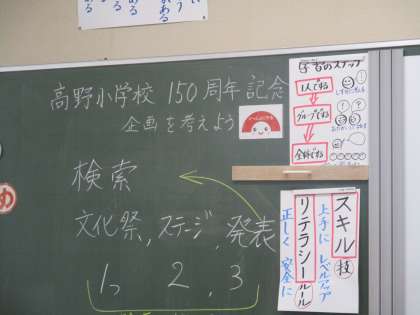 高野小学校 150周年記念
企画を考えよう
検索
文化祭, ステージ, 発表
1, 2, 3
学習のステップ
1人でする
グループでする
全体でする
スキル 技
上手に レベルアップ
リテラシー ルール
正しく 安全に